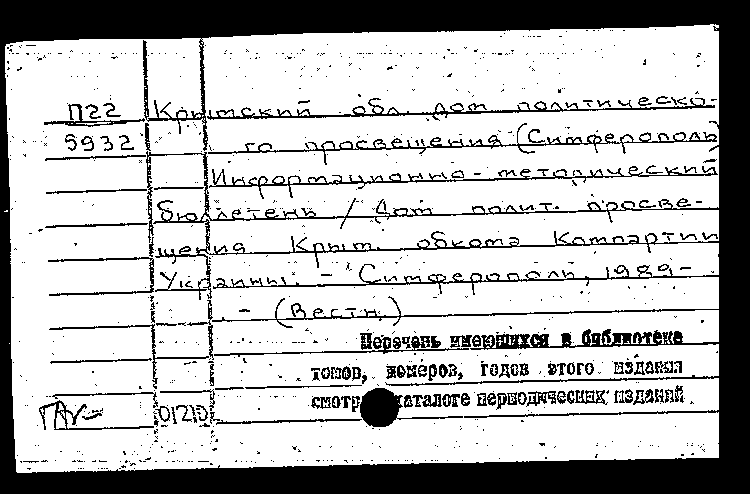 П22 Крымский обл. дом политическо-
5932 го просвещения (Симферополь)
Информационно-методический
бюллетень / Дом полит. просве-
щения Крым. обкома Компартии
Украины. - Симферополь, 1989-
. - (Вестн.)
Перечень имеющихся в библиотеке
томов, номеров, годов этого издания
смотр каталоге периодических изданий
01210